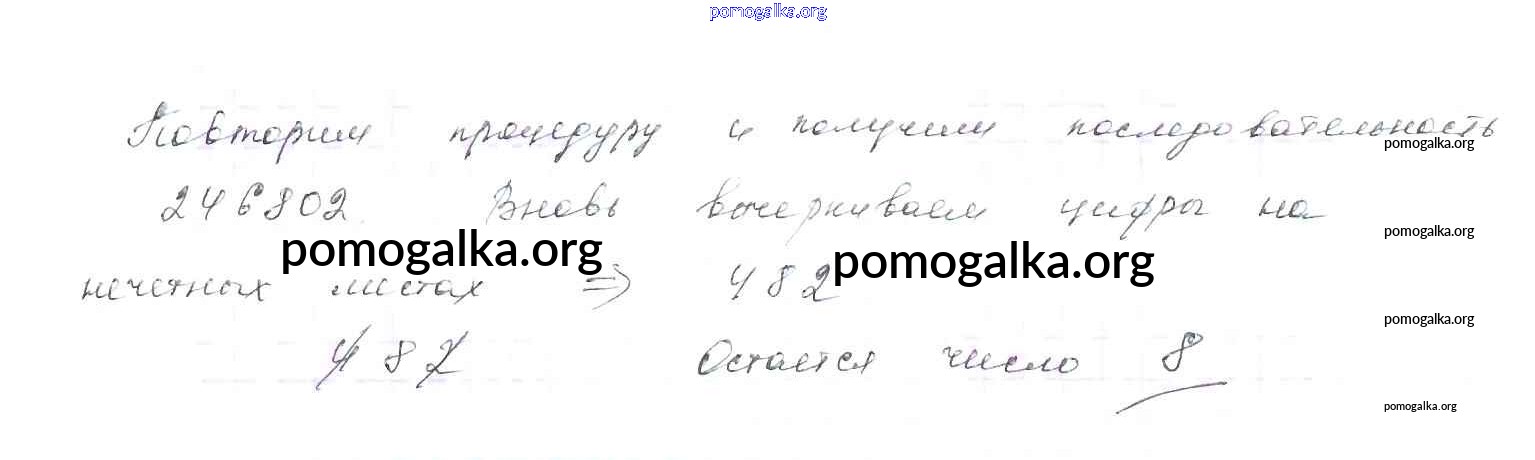 pomogalka.org
Повторим процедуру и получим последовательность
pomogalka.org
246802. Вновь вычеркиваем цифры на
pomogalka.org
pomogalka.org
pomogalka.org
нечетных местах => 482
pomogalka.org
4 8 2 Остается число 8
pomogalka.org